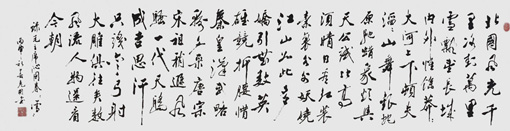 北國風光千
里冰封萬里
雪飄望長城
内外惟餘莽
莽大河上下頓失
滔滔山舞銀蛇
原馳蠟象欲與
天公試比高須
晴日看紅
裝素裹分外妖嬈
江山如此多
嬌引無數英
雄競折腰惜
秦皇漢武略
輸文采唐宗
宋祖稍遜風
騷一代天驕
成吉思汗
只識彎弓射
大雕俱往矣數
風流人物還看
今朝
錄毛主席沁園春雪
丙申